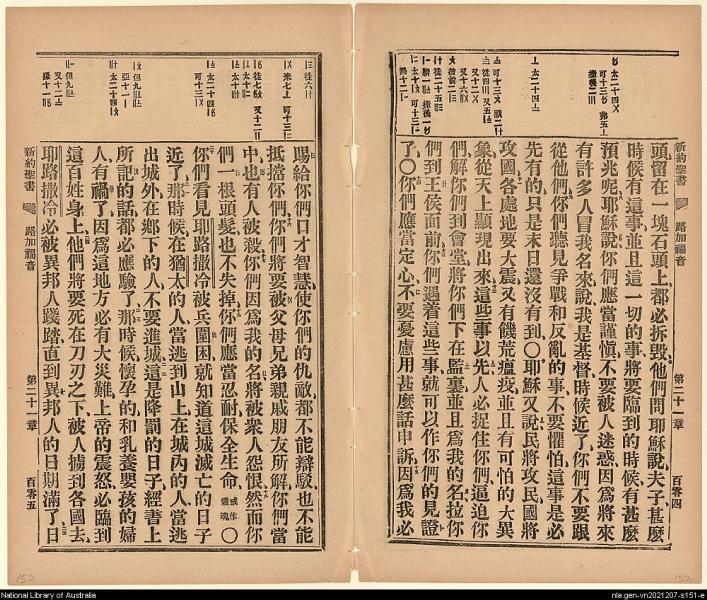 新約聖書 路加福音 第二十一章 百零四
頭留在一塊石頭上都必拆毀他們問耶穌說夫子甚麼
時候有這事並且這一切的事將要臨到的時候有甚麼
預兆呢耶穌說你們應當謹愼不要被人迷惑因爲將來
有許多人冒我名來說我是基督時候近了你們不要跟
從他們你們聽見爭戰和反亂的事不要懼怕這事是必
先有的只是末日還沒有到〇耶穌又說民將攻民國將
攻國各處地要大震又有饑荒瘟疫並且有可怕的大異
象從天上顯現出來這些事以先人必捉住你們逼迫你
們解你們到會堂將你們下在監裏並且爲我的名拉你
們到王侯面前你們遇着這些事就可以作你們的見證
了〇你們應當定心不要憂慮用甚麼話申訴因爲我必
賜給你們口才智慧使你們的仇敵都不能辯駁也不能
抵擋你們你們將要被父母兄弟親戚朋友所解你們當
中也有人被殺你們因爲我的名將被衆人怨恨然而你
們一根頭髮也不失掉你們應當忍耐保全生命或作靈魂〇
你們看見耶路撒冷被兵圍困就知道這城滅亡的日子
近了那時候在猶太的人當逃到山上在城內的人當逃
出城外在鄉下的人不要進城這是降罰的日子經書上
所記的話都必應驗了那時候懷孕的和乳養嬰孩的婦
人有禍了因爲這地方必有大災難上帝的震怒必臨到
這百姓身上他們將要死在刀刃之下被人擄到各國去
耶路撒冷必被異邦人踐踏直到異邦人的日期滿了日
新約聖書 路加福音 第二十一章 百零五
152
152
National Library of Australia
nla.gen-vn2021207-s151-e